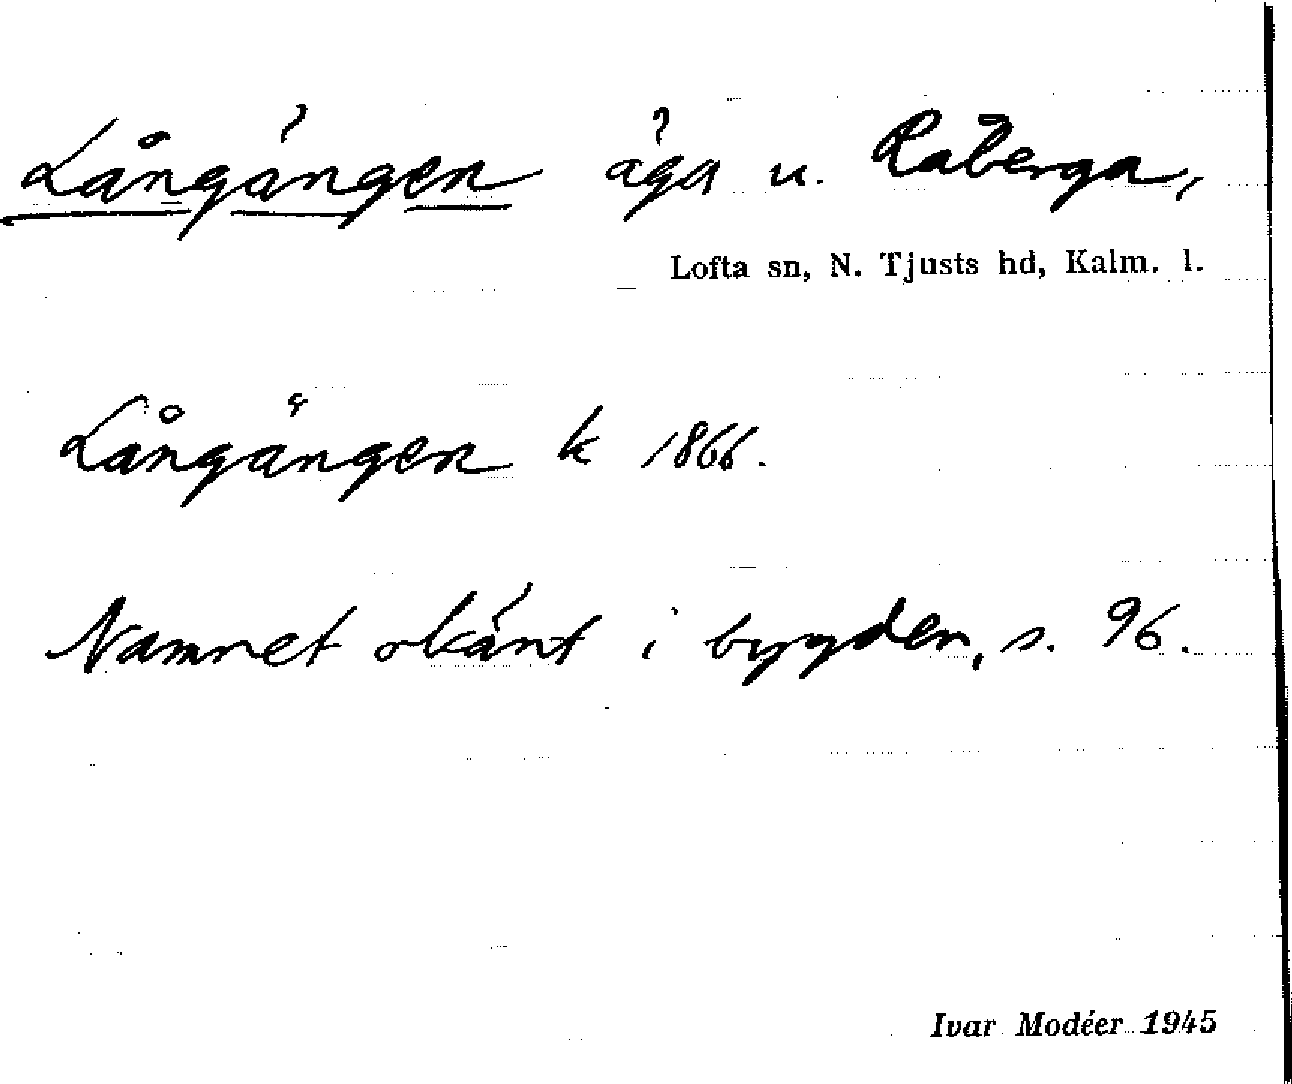 Långängen äga u. Råberga,
Lofta sn, N. Tjusts hd, Kalm. l.
Långängen k 1866.
Namnet okänt i bygden, s. 96.
Ivar Modéer 1945